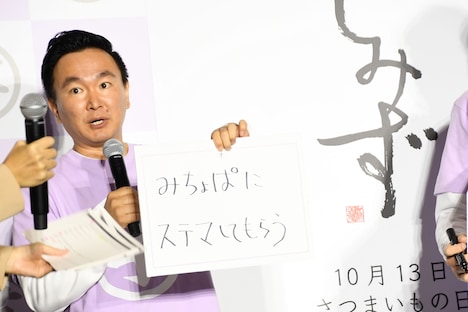 みちょぱに
ステマしてもらう
みず
10月13日
さつまいもの日